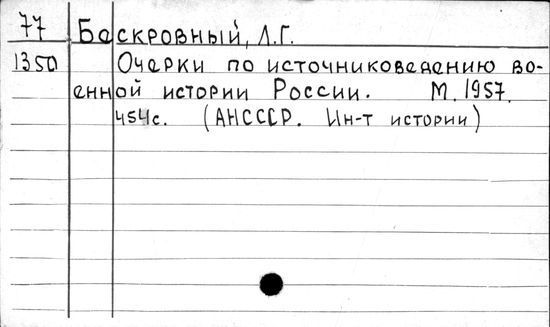 77 Бескровный, Л.Г.
1350 Очерки по источниковедению во-
енной истории России. М. 1957.
454с. (АНСССР. Ин-т истории)